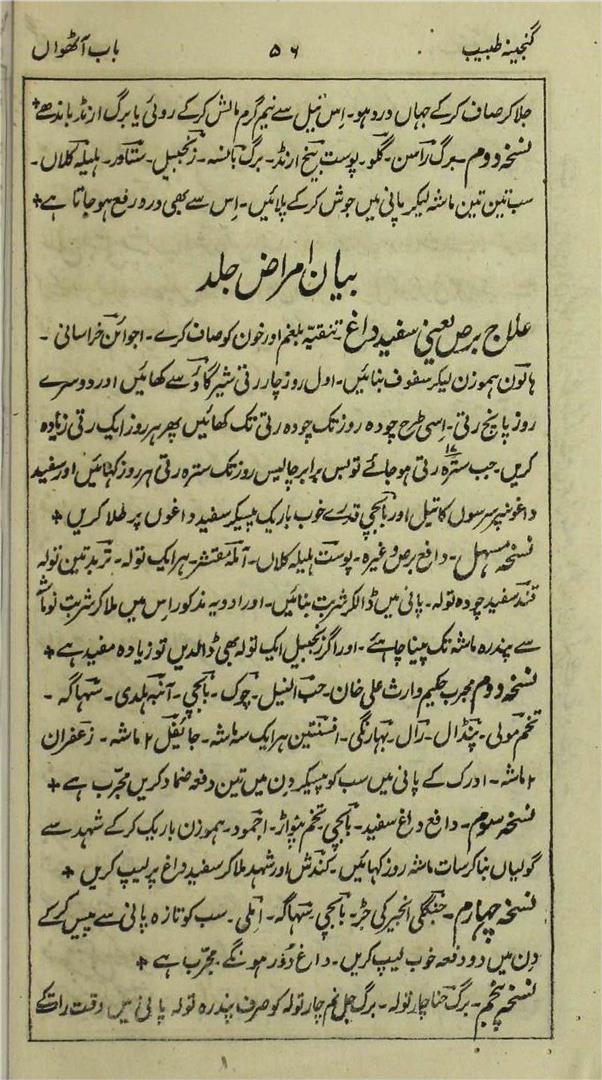 گنجینہ طبیب ۵۶ باب آٹھواں
جلا کر صاف کر کے جہاں درد ہو۔ اِس تیل سے نیم گرم مالش کر کے روئی یا برگ ارنڈ باندھے +
نسخہ دوم۔ برگ راسن۔ گلو۔ پوست بیخ ارنڈ۔ برگ بانسہ۔ زنجبیل۔ ستاور۔ ہلیلہ کلاں۔
سب تین تین ماشہ لیکر پانی میں جوش کر کے پلائیں۔ اِس سے بھی درد رفع ہو جاتا ہے +
بیان امراض جلد
علاج برص یعنی سفید داغ۔ تنقیہ بلغم اور خون کو صاف کرے۔ اجوائن خراسانی۔
ہالون ہموزن لیکر سفوف بنائیں۔ اول روز چار رتی شیر گاؤ سے کھائیں اور دوسرے
روز پانچ رتی۔ اِسی طرح چودہ روز تک چودہ رتی تک کھائیں پھر ہر روز ایک رتی زیادہ
کریں۔ جب سترہ ۱۷ رتی ہو جائے تو بس برابر چالیس روز تک سترہ رتی ہر روز کھائیں اور سفید
داغونپر سرسوں کا تیل اور بابچی قدرے خوب باریک پیسکر سفید داغوں پر طلا کریں +
نسخہ مسہل۔ دافع برص وغیرہ۔ پوست ہلیلہ کلاں۔ آملہ مقشر۔ ہر ایک تولہ۔ تربد تین تولہ
قند سفید چودہ تولہ۔ پانی میں ڈالکر شربت بنائیں۔ اور ادویہ مذکور اس میں ملا کر شربت نو ماشہ
سے پندرہ ماشہ تک پینا چاہئے۔ اور اگر زنجبیل ایک تولہ بھی ڈالدیں تو زیادہ مفید ہے +
نسخہ دوم مجرب حکیم وارث علی خان۔ حب النیل۔ چوک۔ بابچی۔ آنبہ ہلدی۔ سہاگہ۔
تخم مولی۔ پنڈال۔ رال۔ بہارنگی۔ افسنتین ہر ایک سہ ماشہ۔ جائفل ۲ ماشہ۔ زعفران
۲ ماشہ۔ ادرک کے پانی میں سب کو پیسکر دِن میں تین دفعہ ضماد کریں مجرب ہے +
نسخہ سوم۔ دافع داغ سفید۔ بابچی تخم پنواڑ۔ اجمود۔ ہموزن باریک کر کے شہد سے
گولیاں بنا کر سات ماشہ روز کہائیں۔ کندش اور شہد ملا کر سفید داغ پر لیپ کریں +
نسخہ چہارم۔ جنگلی انجیر کی جڑ۔ بابچی۔ سہاگہ۔ املی۔ سب کو تازہ پانی سے پیس کر کے
دِن میں دو دفعہ خوب لیپ کریں۔ داغ دُور ہونگے۔ مجرب ہے +
نسخہ پنجم۔ برگ حنا چار تولہ۔ برگ نم چار تولہ کو صرف پندرہ تولہ پانی میں وقت رات کے